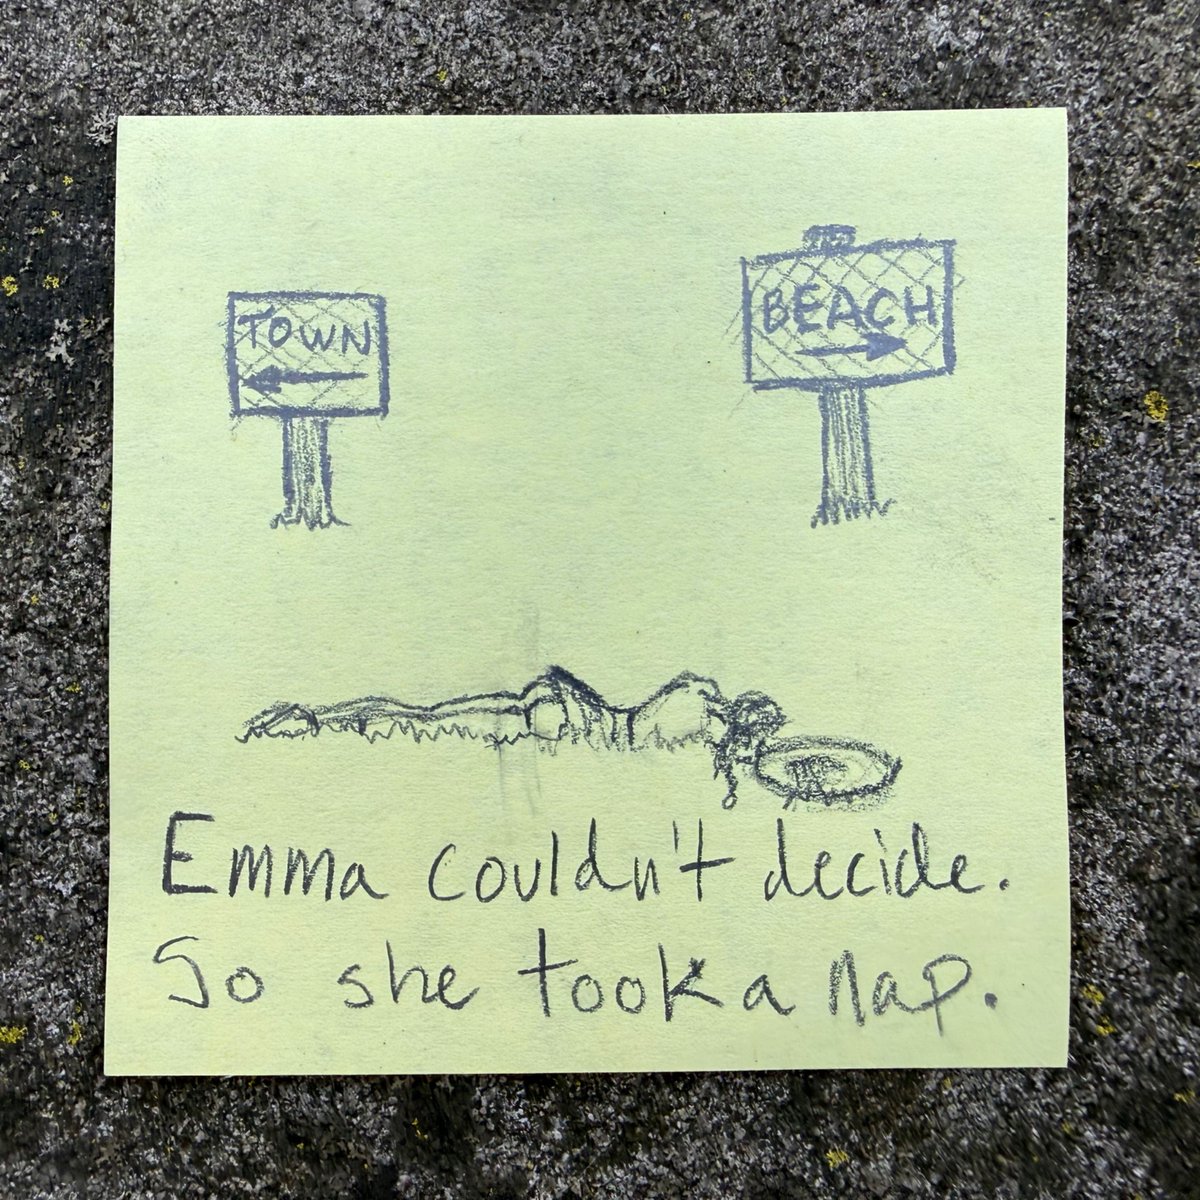 TOWN
BEACH
Emma couldn't decide.
So she took a nap.